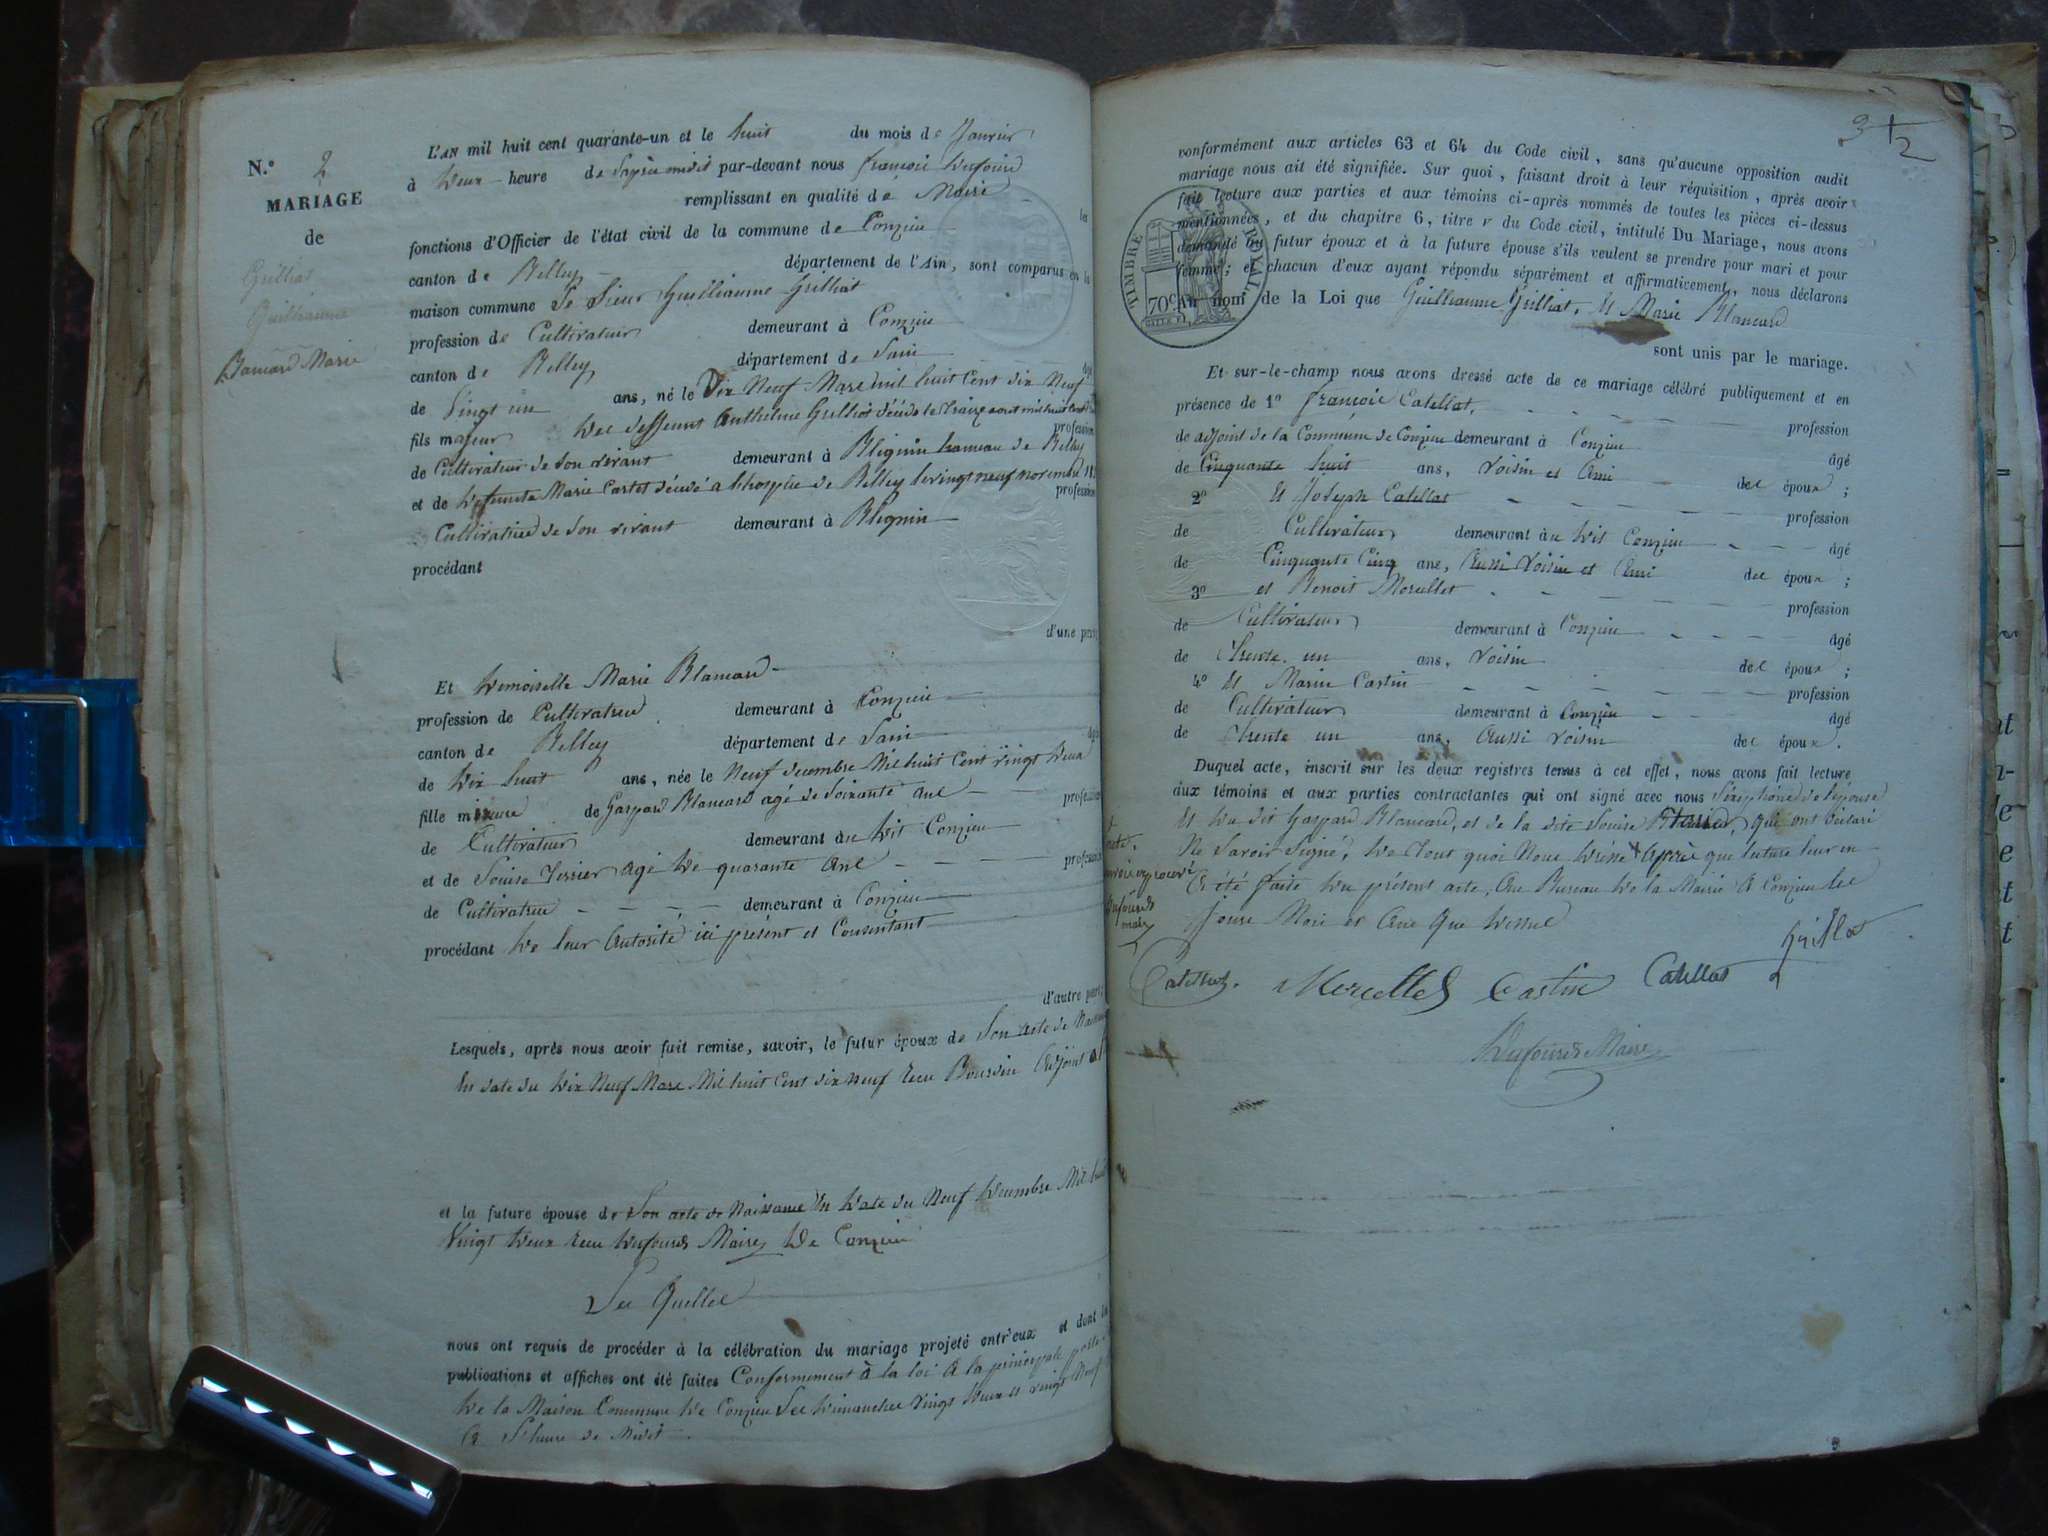 N.º 2
MARIAGE
de
Grilliat
Guilliaume
Blancard Marie
L'AN mil huit cent quarante-un et le huit du mois de Janvier
à deux heure de l'après midit par-devant nous françois Dufourd
remplissant en qualité de Maire les
fonctions d'Officier de l'état civil de la commune de Conzieu
canton de Belley département de l'Ain, sont comparus en la
maison commune Le Sieur Guilliaume Grilliat
profession de Cultivateur demeurant à Conzieu
canton de Belley département de Lain âgé
de Vingt un ans, né le Dix Neuf Mars mil huit Cent dix Neuf
fils majeur des deffeunt Anthelme Grilliat décédé le traize aout mil huit Cent
profession
de Cultivateur de son vivant demeurant à Blignin hameau de Belley
et de defunte Marie Cartet décédé a lhospice de Belley le vingt neuf novembre
profession
Cultivatrice de son vivant demeurant à Blignin
procédant
d'une part
Et Demoiselle Marie Blancard
profession de Cultivatrice demeurant à Conzieu
canton de Belley département de Lain âgé
de Dix huit ans, née le Neuf decembre Mil huit Cent vingt deux
fille mineure de Gaspard Blancard agé de Soixante ans
profession
de Cultivateur demeurant au dit Conzieu
et de Louise Terrier agé de quarante ans profession
de Cultivatrice demeurant à Conzieu
procédant de leur Autorité ici présent et Consentant
d'autre part;
Lesquels, après nous avoir fait remise, savoir, le futur époux de Son acte de
En date du Dix Neuf Mars Mil huit Cent dix neuf Recu Bourdin Adjoint
et la future épouse de Son acte de Naissance En date du Neuf decembre Mil
Vingt deux Recu Dufourd Maire de Conzieu
Les Quelles
nous ont requis de procéder à la célébration du mariage projeté entr'eux et dont les
publications et affiches ont été faites Conformement à la loi a la principale porte
de la Maison Commune de Conzieu Les dimanches vingt deux et vingt Neuf
a L'heure de Midit
3 1/2
conformément aux articles 63 et 64 du Code civil, sans qu'aucune opposition audit
mariage nous ait été signifiée. Sur quoi, faisant droit à leur réquisition, après avoir
fait lecture aux parties et aux témoins ci-après nommés de toutes les pièces ci-dessus
mentionnées, et du chapitre 6, titre v du Code civil, intitulé Du Mariage, nous avons
demandé au futur époux et à la future épouse s'ils veulent se prendre pour mari et pour
femme; et chacun d'eux ayant répondu séparément et affirmativement, nous déclarons
au nom de la Loi que Guilliaume Grilliat, Et Marie Blancard
TIMBRE ROYAL
70 C.
sont unis par le mariage.
Et sur-le-champ nous avons dressé acte de ce mariage célébré publiquement et en
présence de 1º françois Catellat,
profession
de adjoint de la Commune de Conzieu demeurant à Conzieu âgé
de Cinquante huit ans, Voisin et Ami des époux;
2º Et Joseph Catellat
profession
de Cultivateur demeurant au dit Conzieu âgé
de Cinquante Cinq ans, Aussi Voisin et Ami des époux;
3º et Benoit Morcellet
profession
de Cultivateur demeurant à Conzieu âgé
de Trente un ans, Voisin des époux;
4º Et Marin Castin
profession
de Cultivateur demeurant à Conzieu âgé
de Trente un ans, Aussi Voisin des époux.
Duquel acte, inscrit sur les deux registres tenus à cet effet, nous avons fait lecture
aux témoins et aux parties contractantes qui ont signé avec nous de l'épouse
Et du dit Gaspard Blancard, et de la dite Louise qui ont déclaré
Ne Savoir Signé, De tout quoi Nous Après que lecture leur en
a été faite du présent acte, Au Bureau de la Mairie a Conzieu les
Jours Mois et Ans Que dessus
Catellat. Morcellet Castin Catellat Grillat
Dufourd Maire